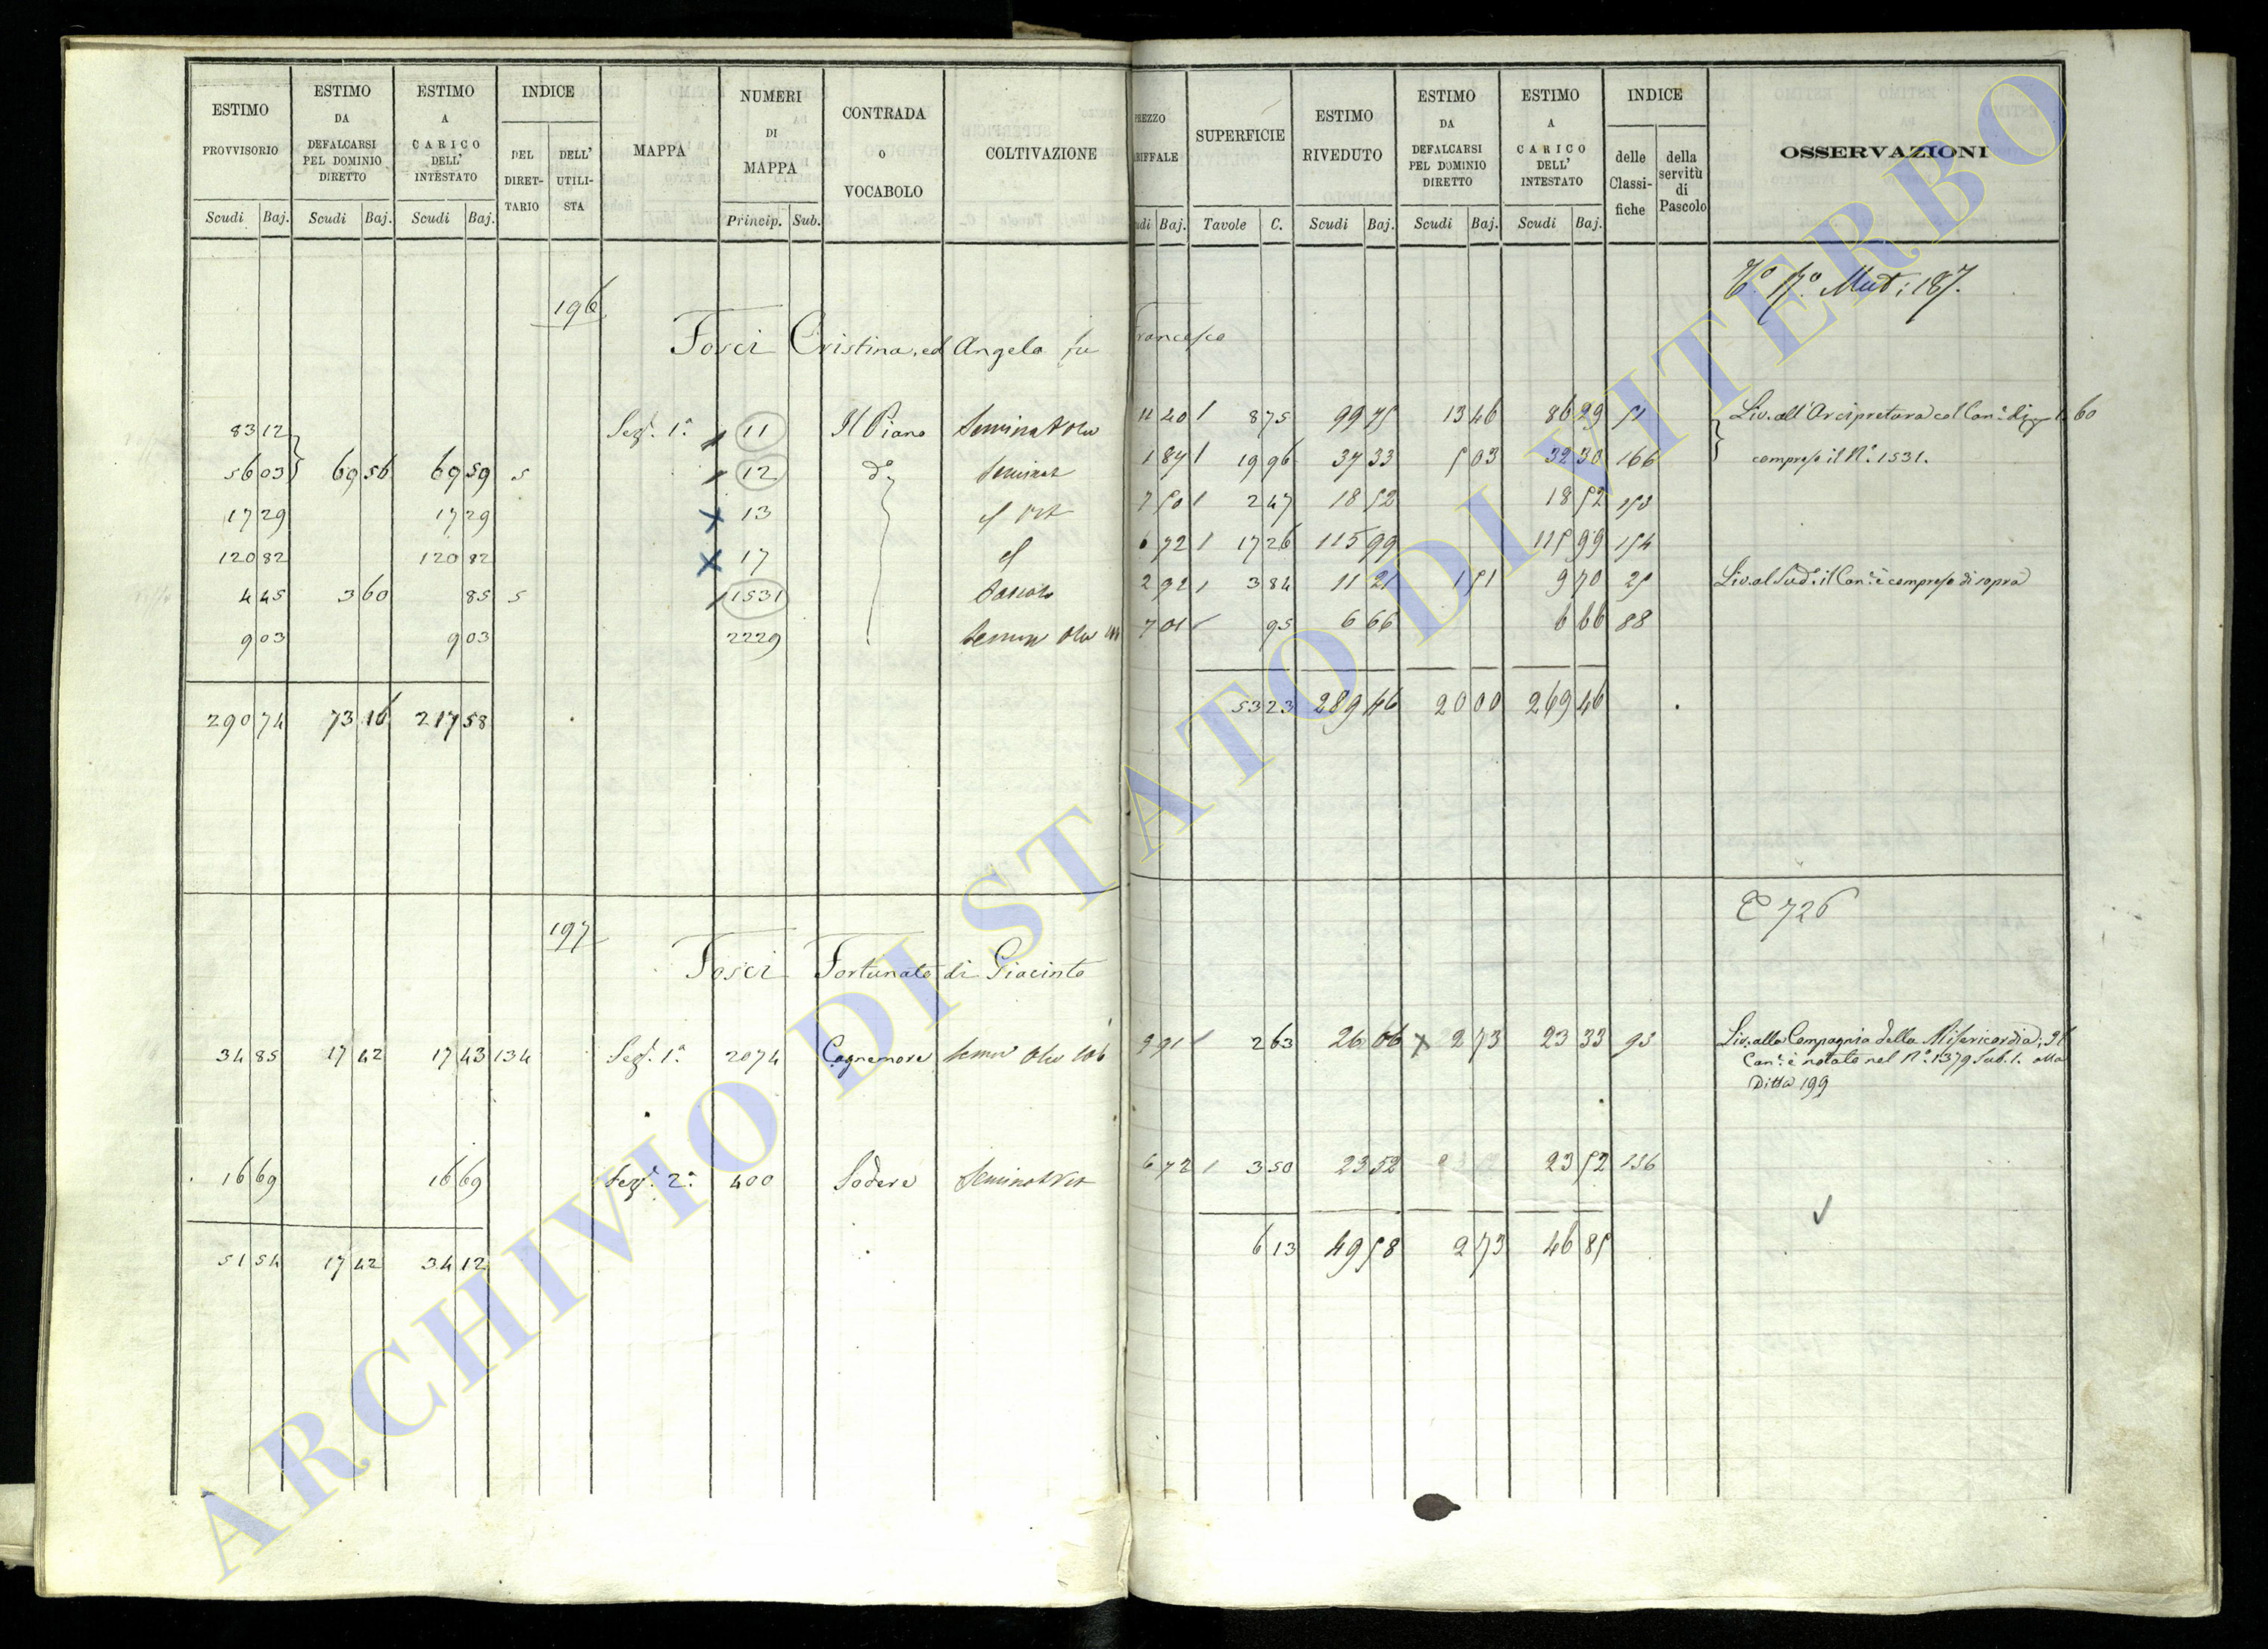 ESTIMO PROVVISORIO
Scudi Baj.
ESTIMO DA DEFALCARSI PEL DOMINIO DIRETTO
Scudi Baj.
ESTIMO A CARICO DELL' INTESTATO
Scudi Baj.
INDICE
DEL DIRET- TARIO
DELL' UTILI- STA
MAPPA
NUMERI DI MAPPA
Princip. Sub.
CONTRADA O VOCABOLO
COLTIVAZIONE
REZZO RIFFALE
udi Baj.
SUPERFICIE
Tavole C.
ESTIMO RIVEDUTO
Scudi Baj.
ESTIMO DA DEFALCARSI PEL DOMINIO DIRETTO
Scudi Baj.
ESTIMO A CARICO DELL' INTESTATO
Scudi Baj.
INDICE
delle Classi- fiche
della servitù di Pascolo
OSSERVAZIONI
196
Fosci Cristina, ed Angela fu Francesco
83 12 Sez. 1ª 11 Il Piano 11 20 875 99 75 13 46 86 29 51 Liv. all' Arcipretura col Can. di 1. 60
56 03 69 56 69 59 5 12 dº 1 87 19 96 37 33 5 03 32 30 166 compreso il Nº. 1531.
17 29 17 29 13 7 50 2 47 18 52 18 52 153
120 82 120 82 17 6 72 17 26 115 99 115 99 154
4 45 3 60 85 5 1531 Pascolo 2 92 3 84 11 21 1 51 9 70 25 Liv. al Sudº. il Can. è compreso di sopra
9 03 9 03 2229 7 01 95 6 66 6 66 88
290 74 73 16 217 58 53 23 289 46 20 00 269 46
197
726
Fosci Fortunato di Giacinto
34 85 17 42 17 43 134 Sez. 1ª 2074 Cognemore 9 91 2 63 26 06 2 73 23 33 93 Liv. alla Compagnia della Misericordia; Il
Can. è notato nel Nº. 1379 Sub. 1. alla
Ditta 199
16 69 16 69 Sez. 2ª 400 Sodere 6 72 3 50 23 52 23 52 136
51 54 17 42 34 12 6 13 49 58 2 73 46 85
ARCHIVIO DI STATO DI VITERBO